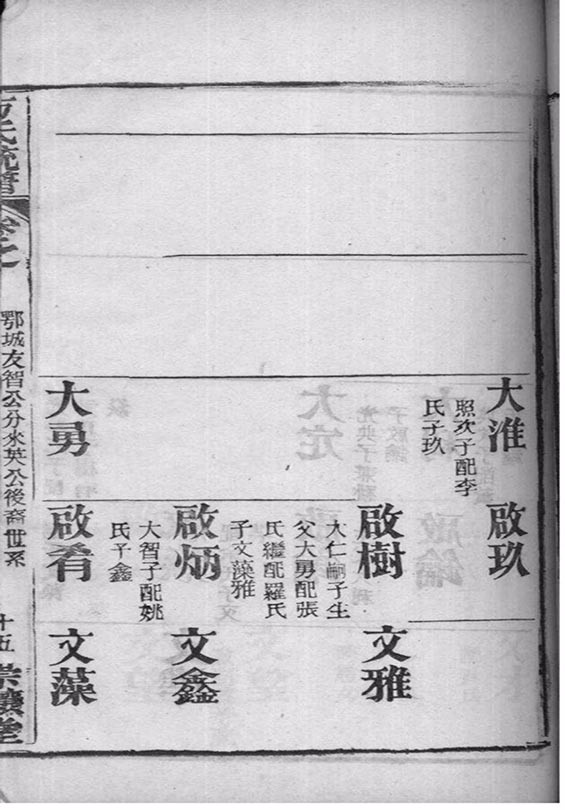 大淮
照次子配李
氏子玖
啟玖
啟樹
大仁嗣子生
父大勇配張
氏繼配羅氏
子文藻雅
文雅
啟炳
大智子配姚
氏子鑫
文鑫
大勇
啟肴
文藻
氏統譜
卷之
鄂城友智公分英公後裔世系
十五
堂